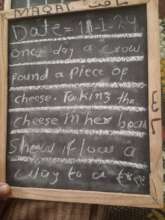 Date = 11-1-24
once day a crow
found a piece of
cheese. Taking the
cheese in her beak
She flow a
way to a tree